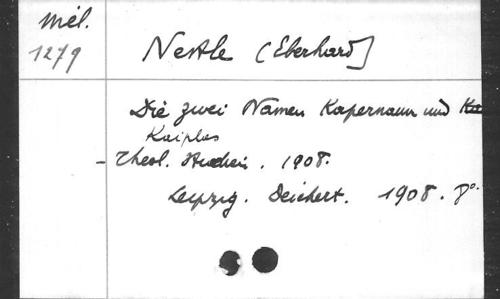 Mél.
1279
Nestle (Eberhard]
Die zwei Namen Kapernaum und
Kaiphas
- Theol. Studien. 1908.
Leipzig. Deichert. 1908. 8°.